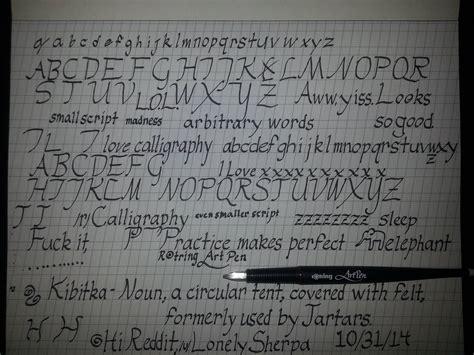 a abcdefghijklmnopqrstuvwxyz
ABCDEFGHIJKLMNOPQR
STUVLOL.WXYZ Aww.yiss.Looks
smallscript madness arbitrary words so good
I love calligraphy abcdefghijklmnopqrstuvwxyz
ABCDEFG I Love xxxxxxxxxx
HIJKLM NOPQRSTUVWXYZ
/r/Calligraphy even smaller script zzzzzzzz sleep
Fuck it P Practice makes perfect elephant
Rotring Art Pen
rotring ArtPen
Kibitka - Noun, a circular tent, covered with felt,
formerly used by Tartars
H H Hi Reddit, /u/Lonely Sherpa 10/31/14